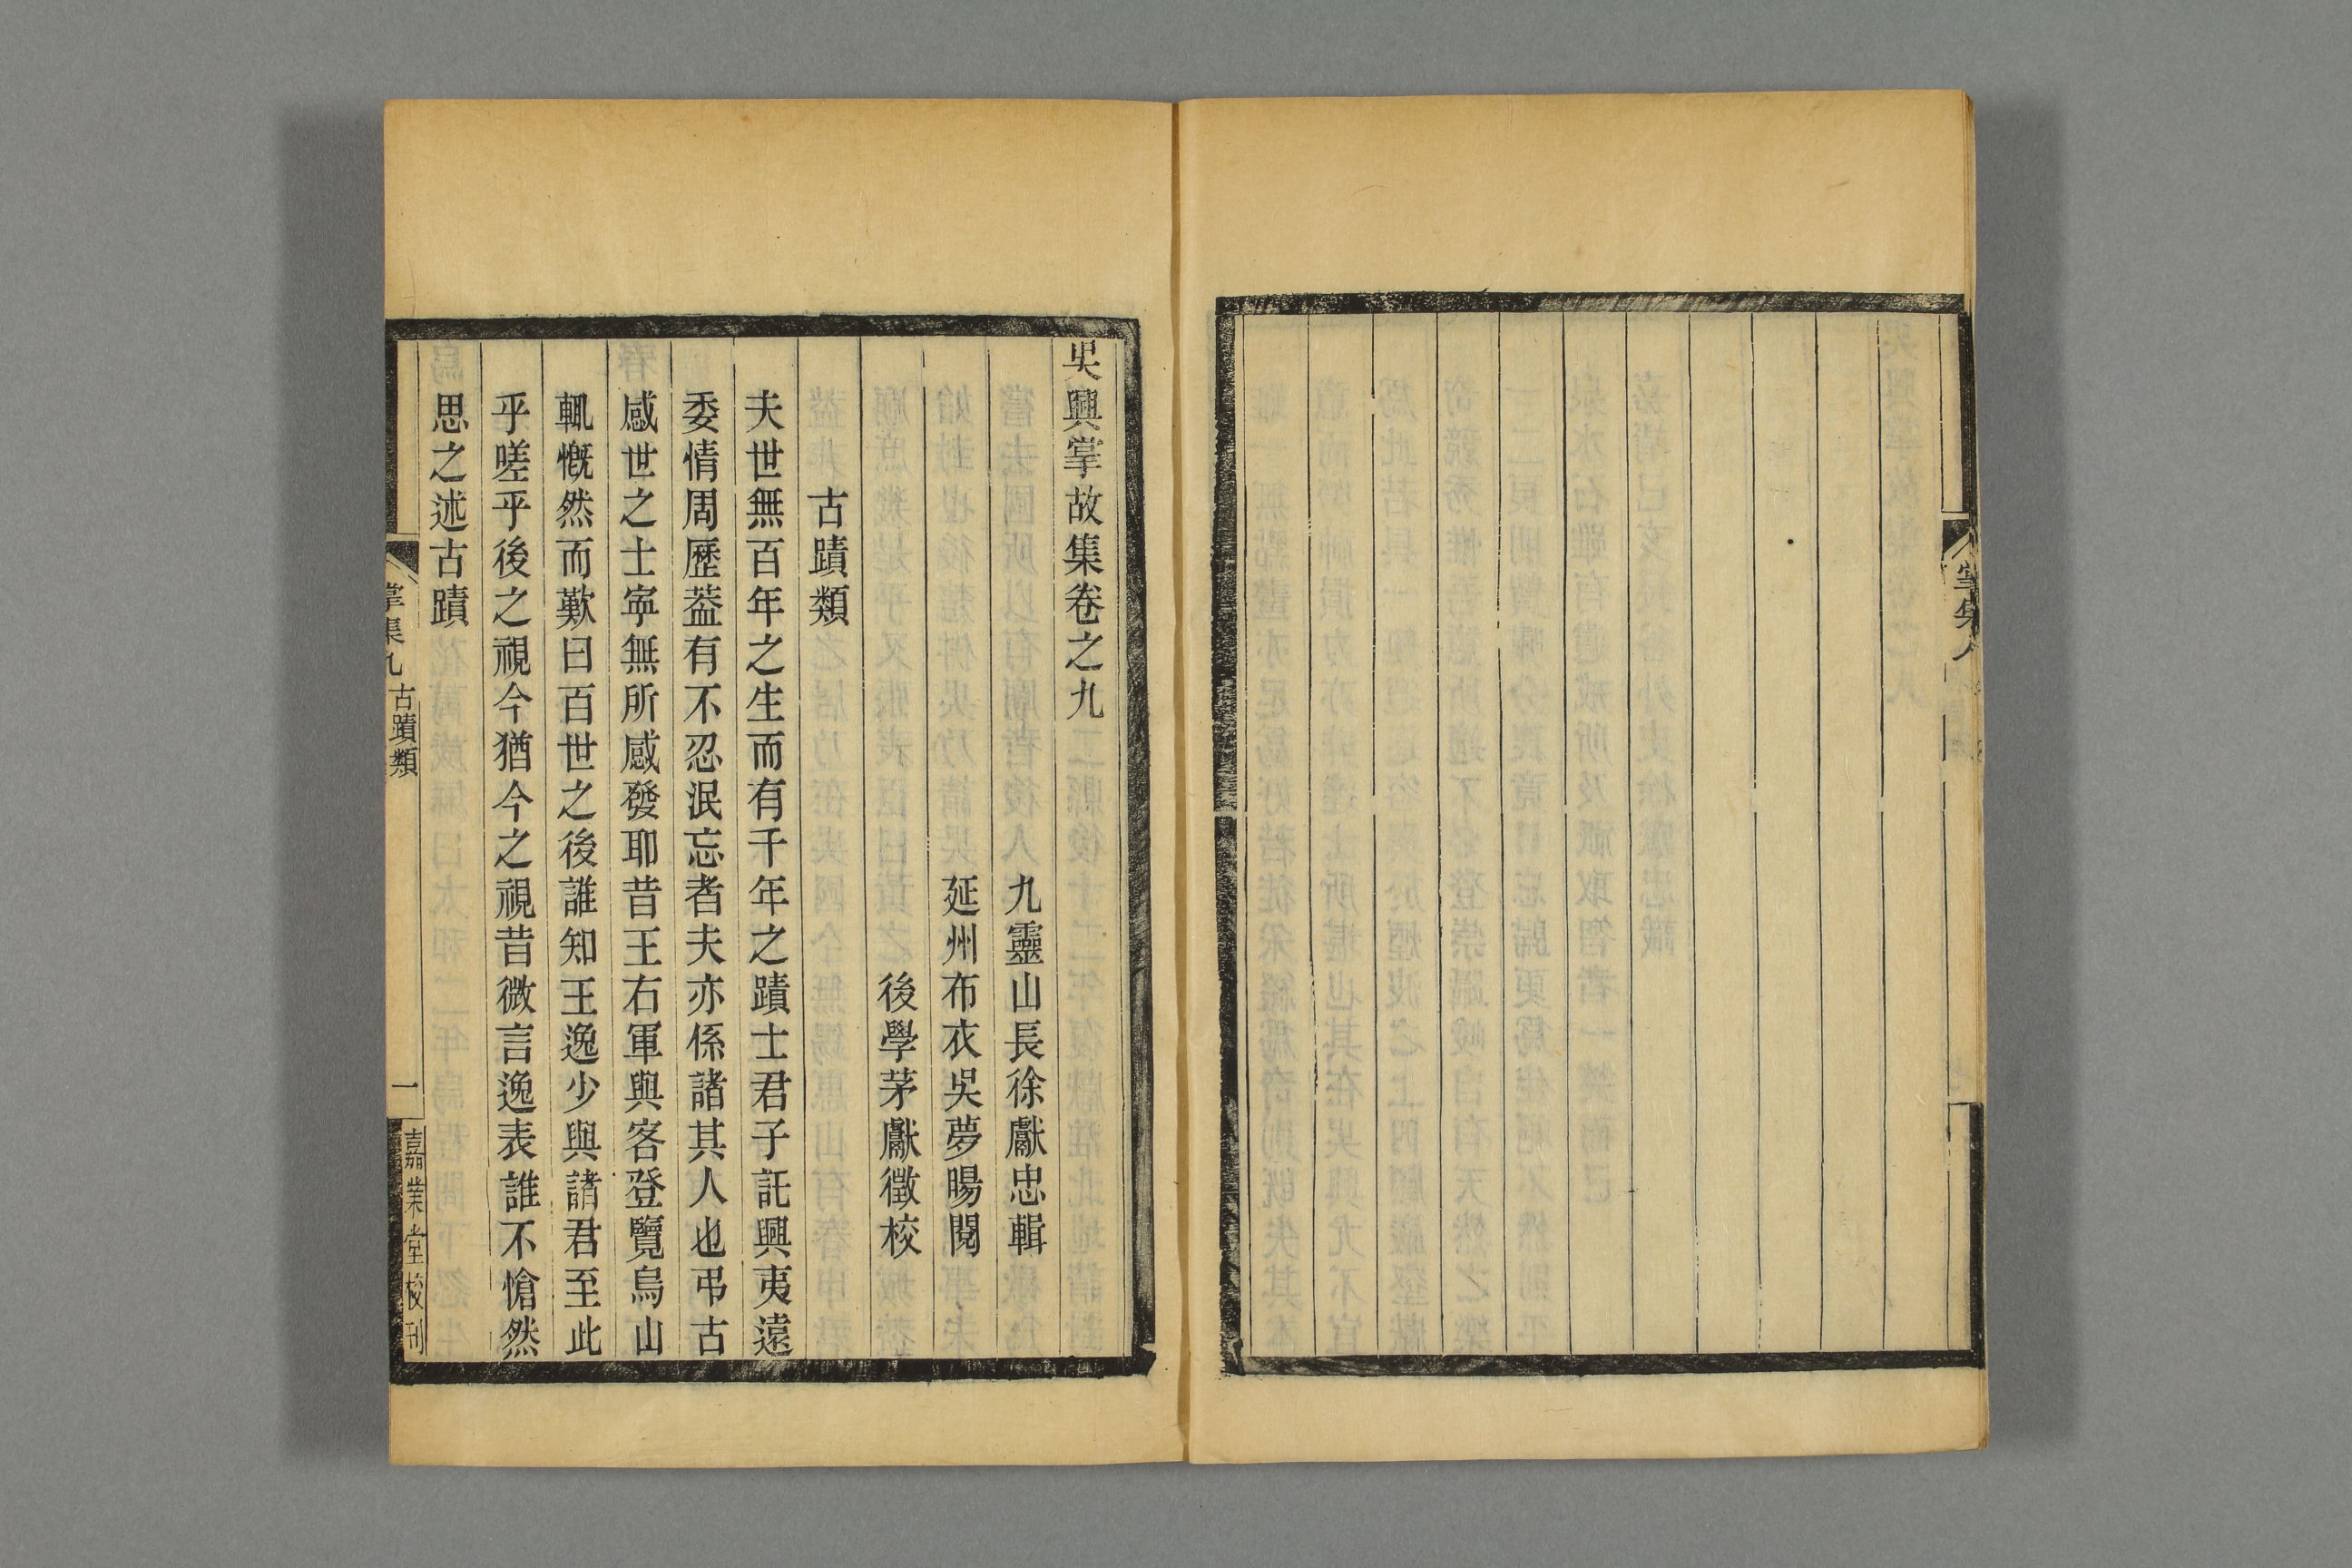 吳興掌故集卷之九
九靈山長徐獻忠輯
延州布衣吳夢暘閱
後學茅獻徵校
古蹟類
夫世無百年之生而有千年之蹟士君子託興夷遠
委情周歷葢有不忍泯忘者夫亦係諸其人也弔古
感世之士寜無所感發耶昔王右軍與客登覽烏山
輒慨然而歎曰百世之後誰知王逸少與諸君至此
乎嗟乎後之視今猶今之視昔微言逸表誰不愴然
思之述古蹟
掌集九 古蹟類 一 嘉業堂校刊